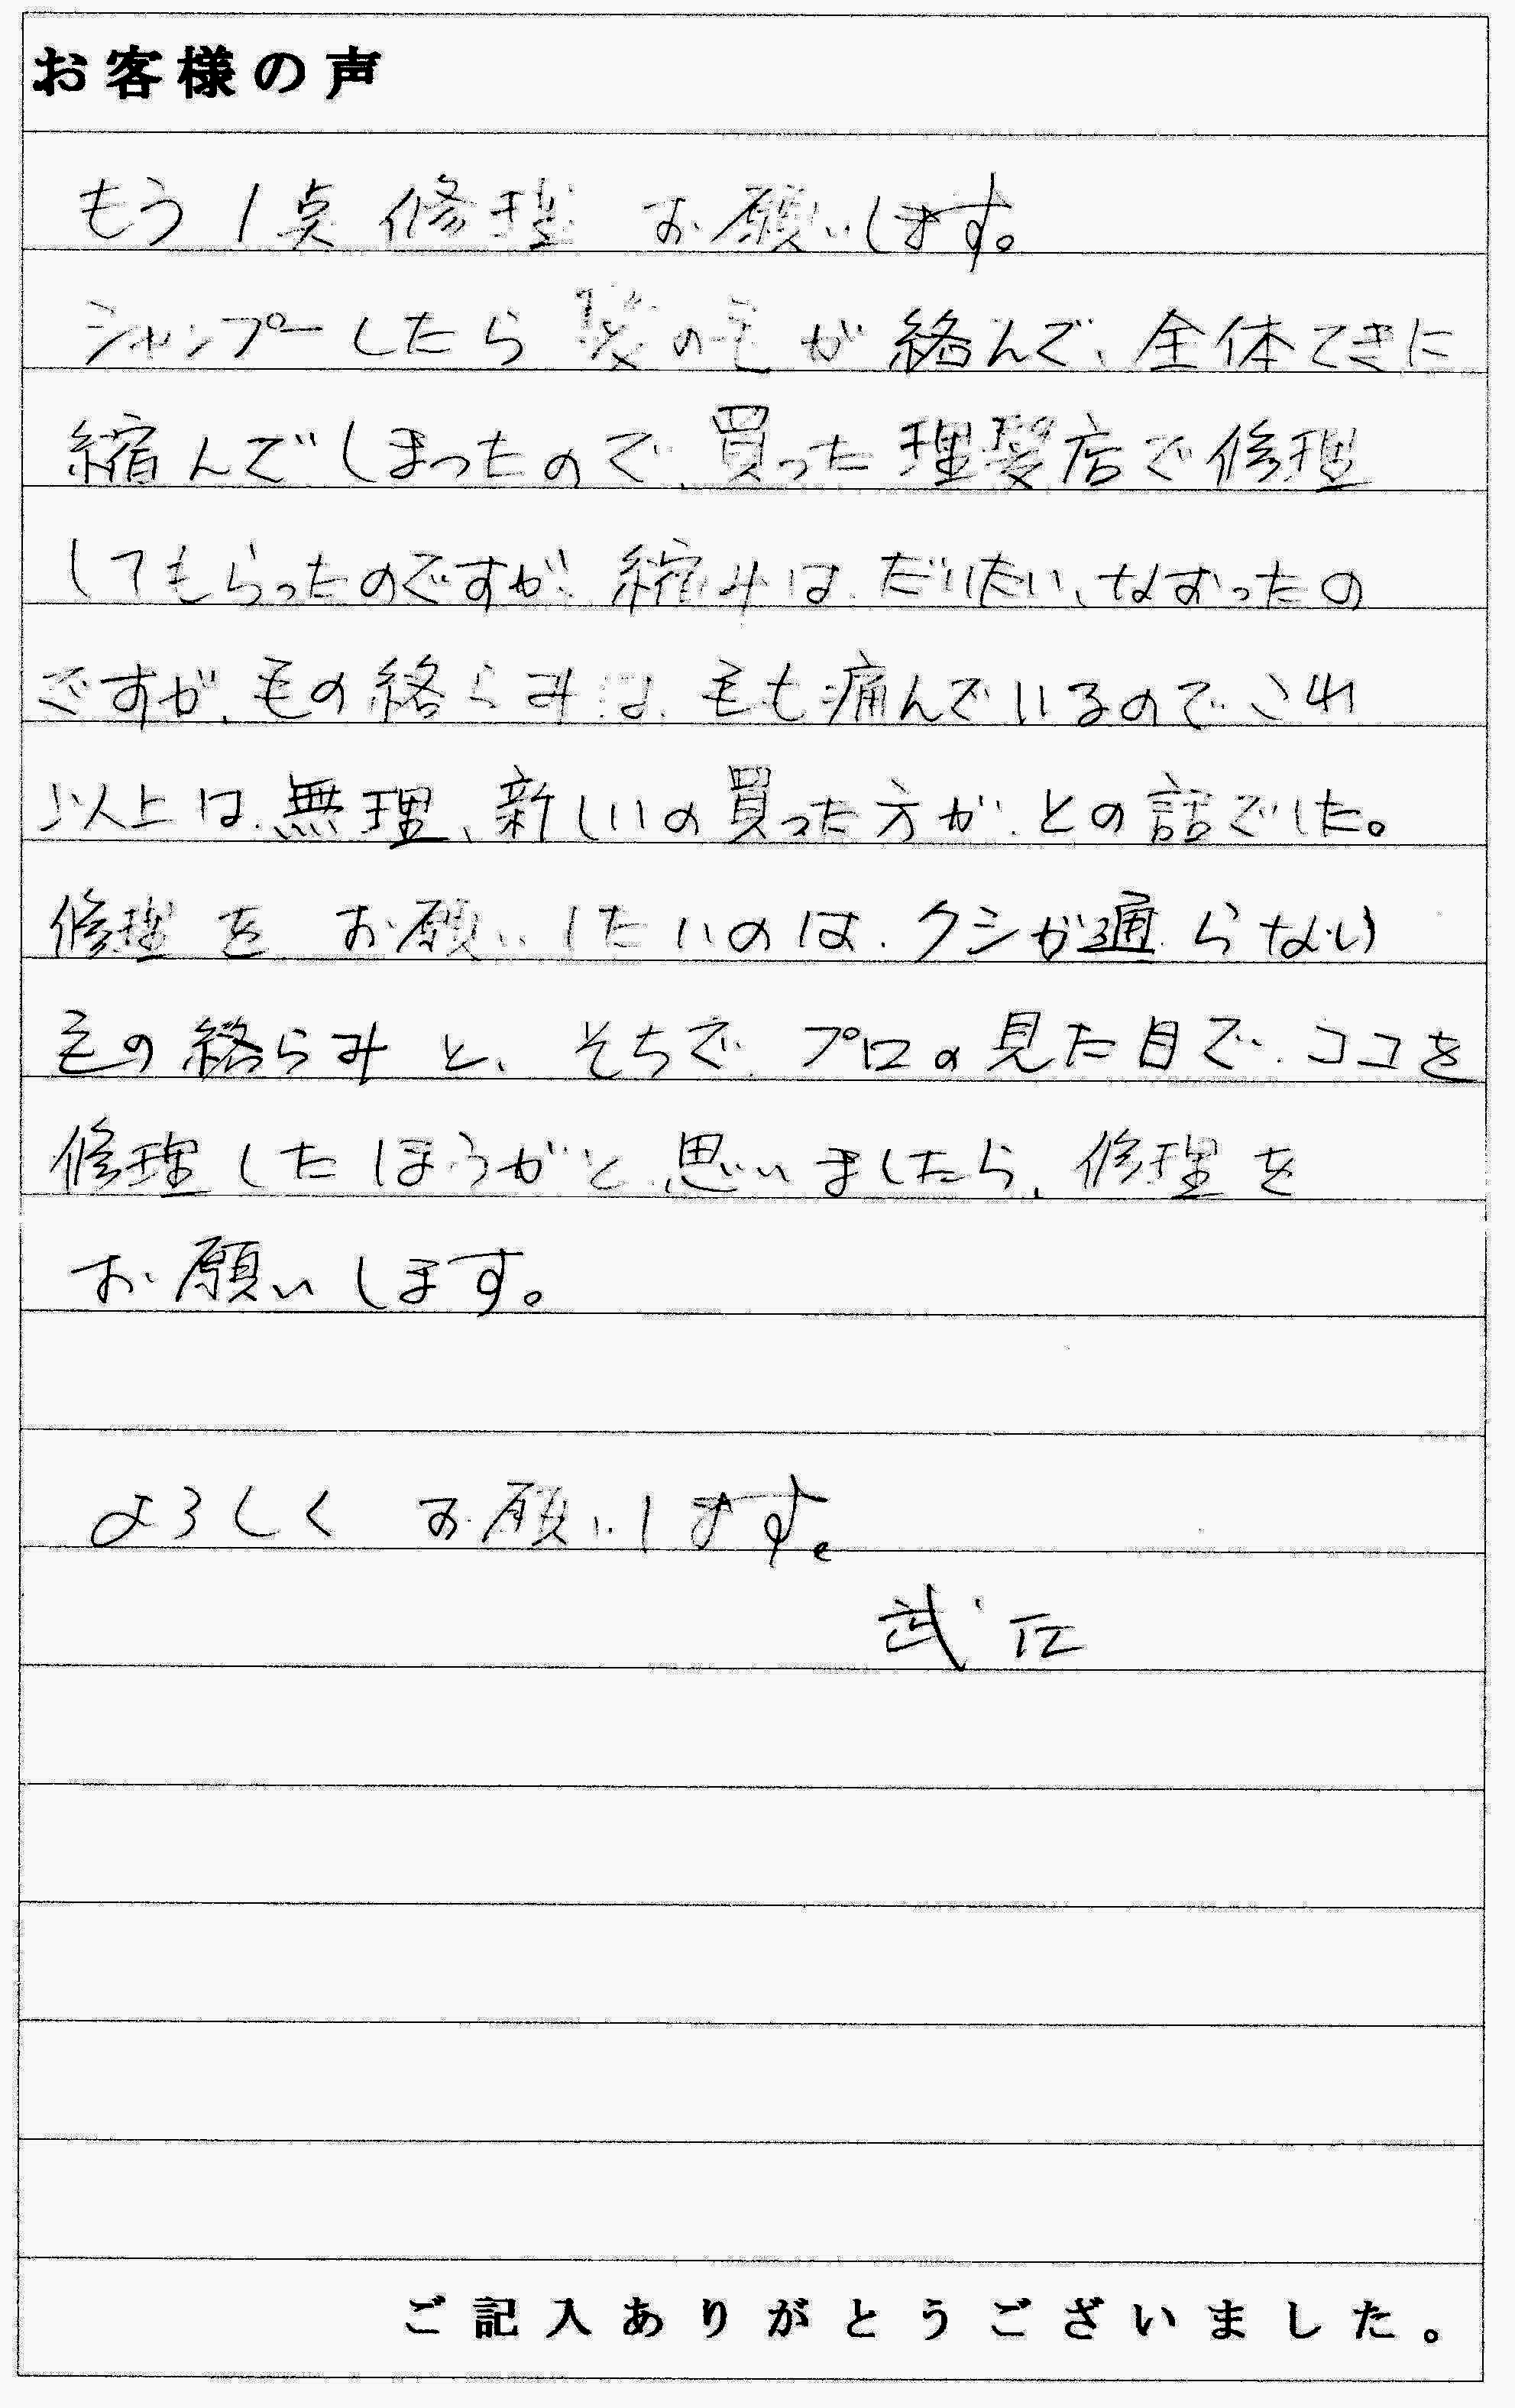 お客様の声
もう1点修理 お願いします。
シャンプーしたら髪の毛が絡んで、全体てきに
縮んでしまったので、買った理髪店で修理
してもらったのですが、縮みは、だいたい、なおったの
ですが、毛の絡らみは、毛も痛んでいるのでこれ
以上は、無理、新しいの買った方が、との話でした。
修理を お願いしたいのは、クシが通らない
毛の絡らみと、そちで、プロの見た目で、ココを
修理したほうがと、思いましたら、修理を
お願いします。
よろしく お願いします。
武
ご記入ありがとうございました。